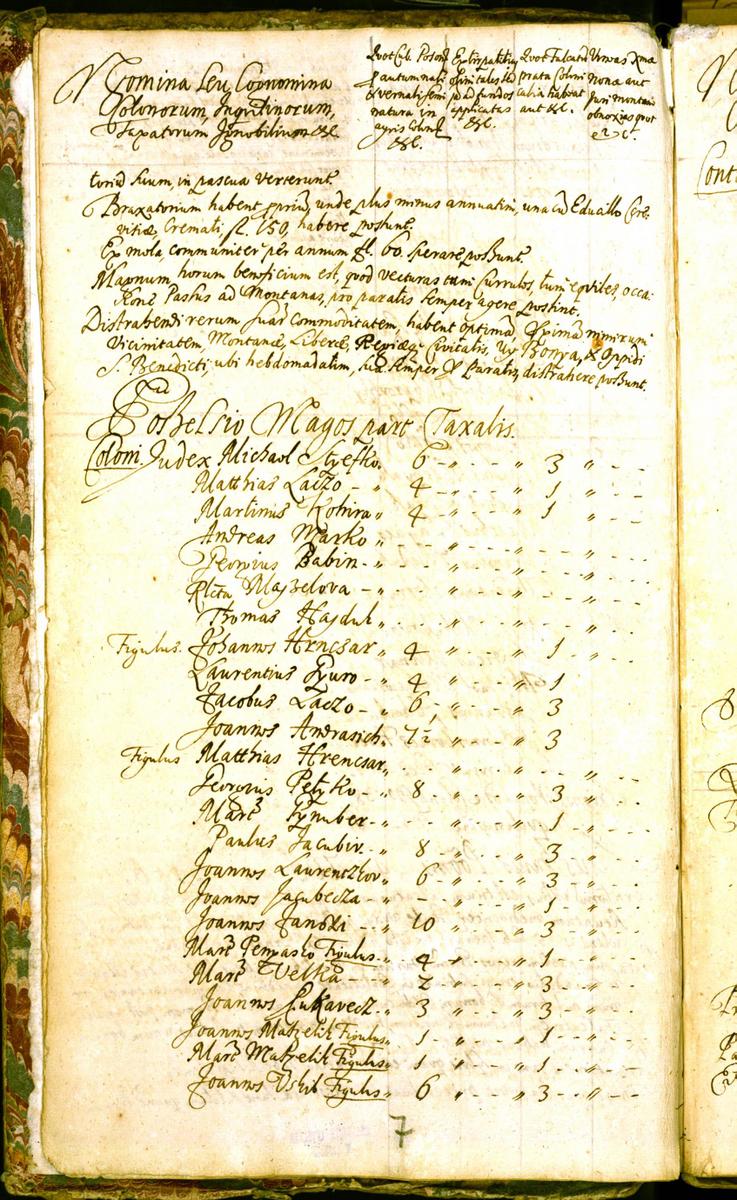 Nomina seu Cognomina
Colonorum, Inquilinorum,
Taxatorum Ignobilium &c.
Quot Cub. Poson.
autumnali
& vernali semi
natura in
agris Colonus
&c.
Extirpatitiis
fundos
applicatas
&c.
Quot Falcatu
prata Coloni
habeat
aut &c.
Urnas Xmæ
Nonæ aut
Juri montano
obnoxias quot
&c.
suum, in pascua verterunt.
Braxatorium habent, unde plus minus annuatim, una cu Educillo Cere-
visiæ Cremati, fl. 150, habere possunt.
Ex mola, communiter per annum fl. 60. sperare possunt.
Magnum horum beneficium est, quod vecturas tam currules, tum equites, occa-
sione Passus ad Montanas, pro paratis semper agere possint.
Distrahendi rerum suaru commoditatem, habent optima, nimirum
Vicinitatem, Montanæ, Liberæ, Regiæq Civitatis, & Oppidi
S. Benedicti, ubi hebdomadatim, sua semper paratis distrahere possunt.
Possessio Magospart Taxalis.
Coloni. Judex Michael Styefko 6 - " - - " 3 " - -
Matthias Laczo - " 4 - " - - " 1 " - -
Martinus Kohira " 4 - " - - " 1 " - -
Andreas Marko " - - " - - " - - " - -
Georgius Babin - " - - " - - " - - " - -
Rlcta Majzelova - " - - " - - " - - " - -
Thomas Hajduk " - - " - - " - - " - -
Figulus. Johannes Hrncsar " 4 " - - " 1 " - -
Laurentius Gyuro - " 4 " - - " 1
Jacobus Laczo - " 6 " - - " 3
Joannes Andrasich " 7½ " - - " 3
Figulus Matthias Hrencsar " - - " - - " - - " - -
Georgius Petyko - " 8 " - - " 3 - - " - -
Mart. Gynuber - " - - " - - " 1 - - " - -
Paulus Jacubiv - " 8 " - - " 3 - - "
Joannes Laurenczkov " 6 - " - - " 3 - - " - -
Joannes Jagubecza - " - - " - - " 1 - - " - -
Joannes Janski - - " 10 " - - " 3 - - " - -
Mart. Pempasko Figulus " 4 " - - " 1 - - " - -
Mart. Velka - - " 2 " - - " 3 - - " - -
Joannes Lukavecz " 3 " - - " 3 - - " - -
Joannes Matzelik Figulus " 1 " - - " 1 - - " - -
Mart. Matzelik Figulus " 1 " - - " 1 - - " - -
Joannes Uskib Figulus " 6 " - - " 3 - - " - -
7